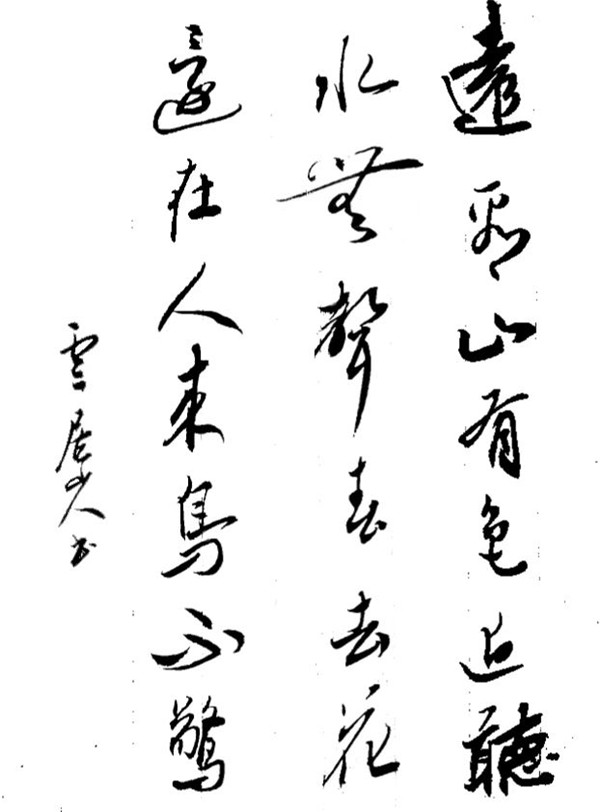 遠看山有色近聽
水無聲春去花
還在人來鳥不驚
雪居山人書